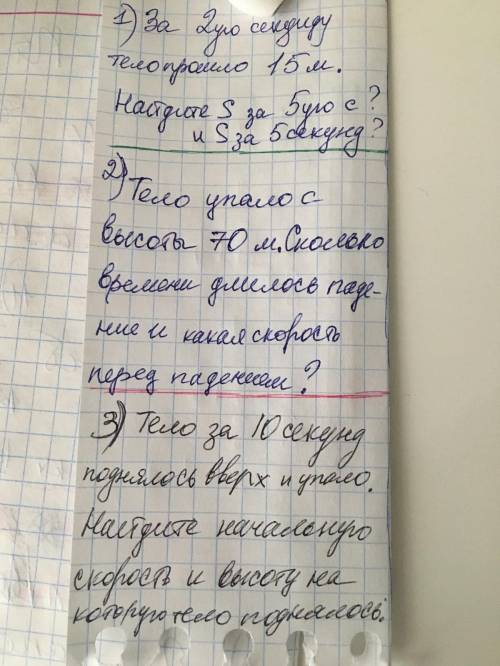 1) За 2ую секунду
тело прошло 15 м.
Найдите S за 5ую с?
и S за 5 секунд?
2) Тело упало с
высоты 70 м. Сколько
времени длилось паде-
ние и какая скорость
перед падением?
3) Тело за 10 секунд
поднялось вверх и упало.
Найдите начальную
скорость и высоту на
которую тело поднялось.